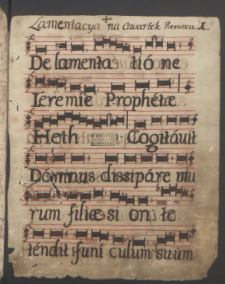 Lamentacya na Czwartek Pierwsza
De lamenta tió ne
Ieremie Prophétæ
Heth Cogitávit
Dóminus dissipáre mu
rum filiæ si on: te
téndit funi culum suum